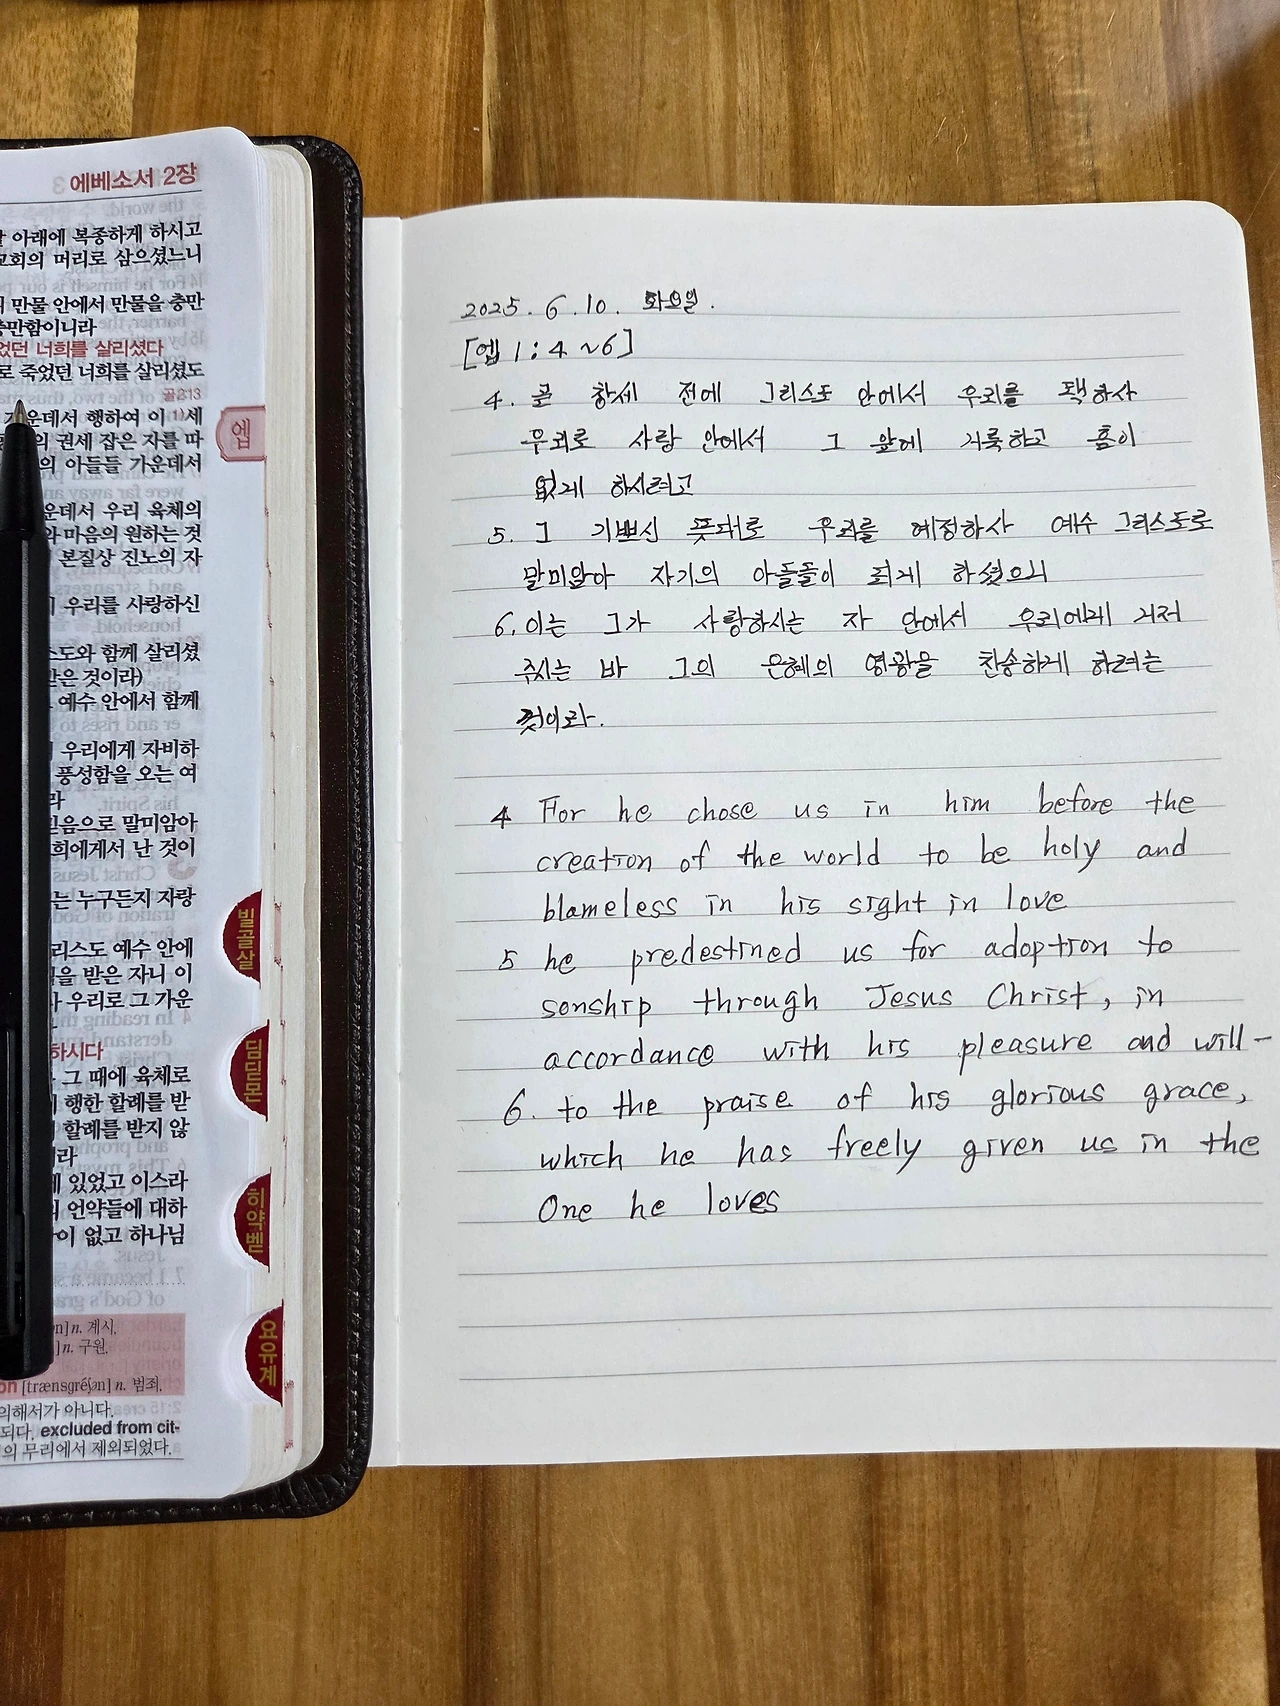 에베소서 2장
아래에 복종하게 하시고
교회의 머리로 삼으셨느니
만물 안에서 만물을 충만
충만함이니라
었던 너희를 살리셨다
로 죽었던 너희를 살리셨도
골2:13
가운데서 행하여 이 세
의 권세 잡은 자를 따
의 아들들 가운데서
운데서 우리 육체의
와 마음의 원하는 것
본질상 진노의 자
우리를 사랑하신
스도와 함께 살리셨
받은 것이라)
예수 안에서 함께
우리에게 자비하
풍성함을 오는 여
라
믿음으로 말미암아
희에게서 난 것이
는 누구든지 자랑
리스도 예수 안에
을 받은 자니 이
우리로 그 가운
하시다
그 때에 육체로
행한 할례를 받
할례를 받지 않
라
있었고 이스라
언약들에 대하
이 없고 하나님
n. 계시.
n. 구원.
on [trænsgréʃən] n. 범죄.
의해서가 아니다.
되다. excluded from cit-
의 무리에서 제외되었다.
엡
빌골살
딤딛몬
히약벧
요유계
2025. 6. 10. 화요일.
[엡 1:4~6]
4. 곧 창세 전에 그리스도 안에서 우리를 택하사
우리로 사랑 안에서 그 앞에 거룩하고 흠이
없게 하시려고
5. 그 기쁘신 뜻대로 우리를 예정하사 예수 그리스도로
말미암아 자기의 아들들이 되게 하셨으니
6. 이는 그가 사랑하시는 자 안에서 우리에게 거저
주시는 바 그의 은혜의 영광을 찬송하게 하려는
것이라.
4 For he chose us in him before the
creation of the world to be holy and
blameless in his sight in love
5 he predestined us for adoption to
sonship through Jesus Christ, in
accordance with his pleasure and will-
6. to the praise of his glorious grace,
which he has freely given us in the
One he loves